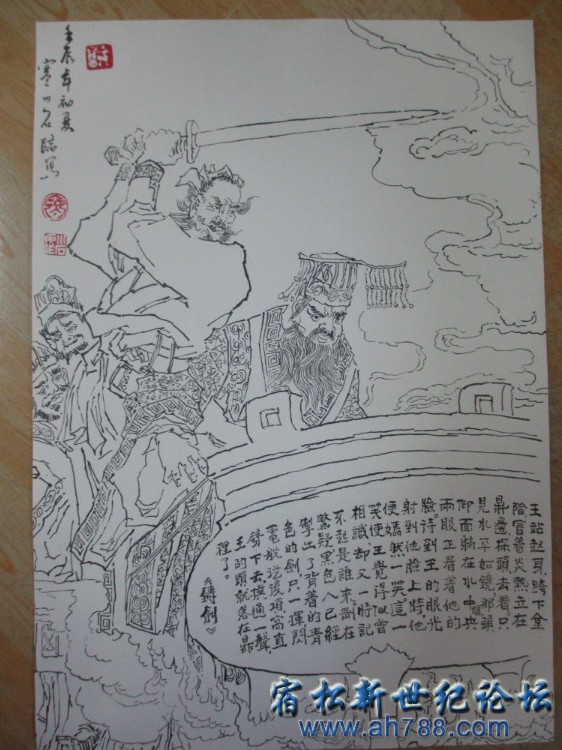 壬辰年初夏
寒川石臨写
王站起身跨下金
階冒着炎熱立在
鼎邊探頭去看只
見水平如鏡那頭
仰面躺在水中央
兩眼正看着他的
臉。待到王的眼光
射到他臉上時他
便嫣然一笑這一
笑使王覺得似曾
相識却又一時記
不起是誰來剛在
驚疑黑色人已經
擎出了背着的青
色的劍只一揮閃
電般從後項窩直
劈下去撲通一聲
王的頭就落在鼎
裡了。
《鑄劍》
宿松新世纪论坛
www.ah788.com